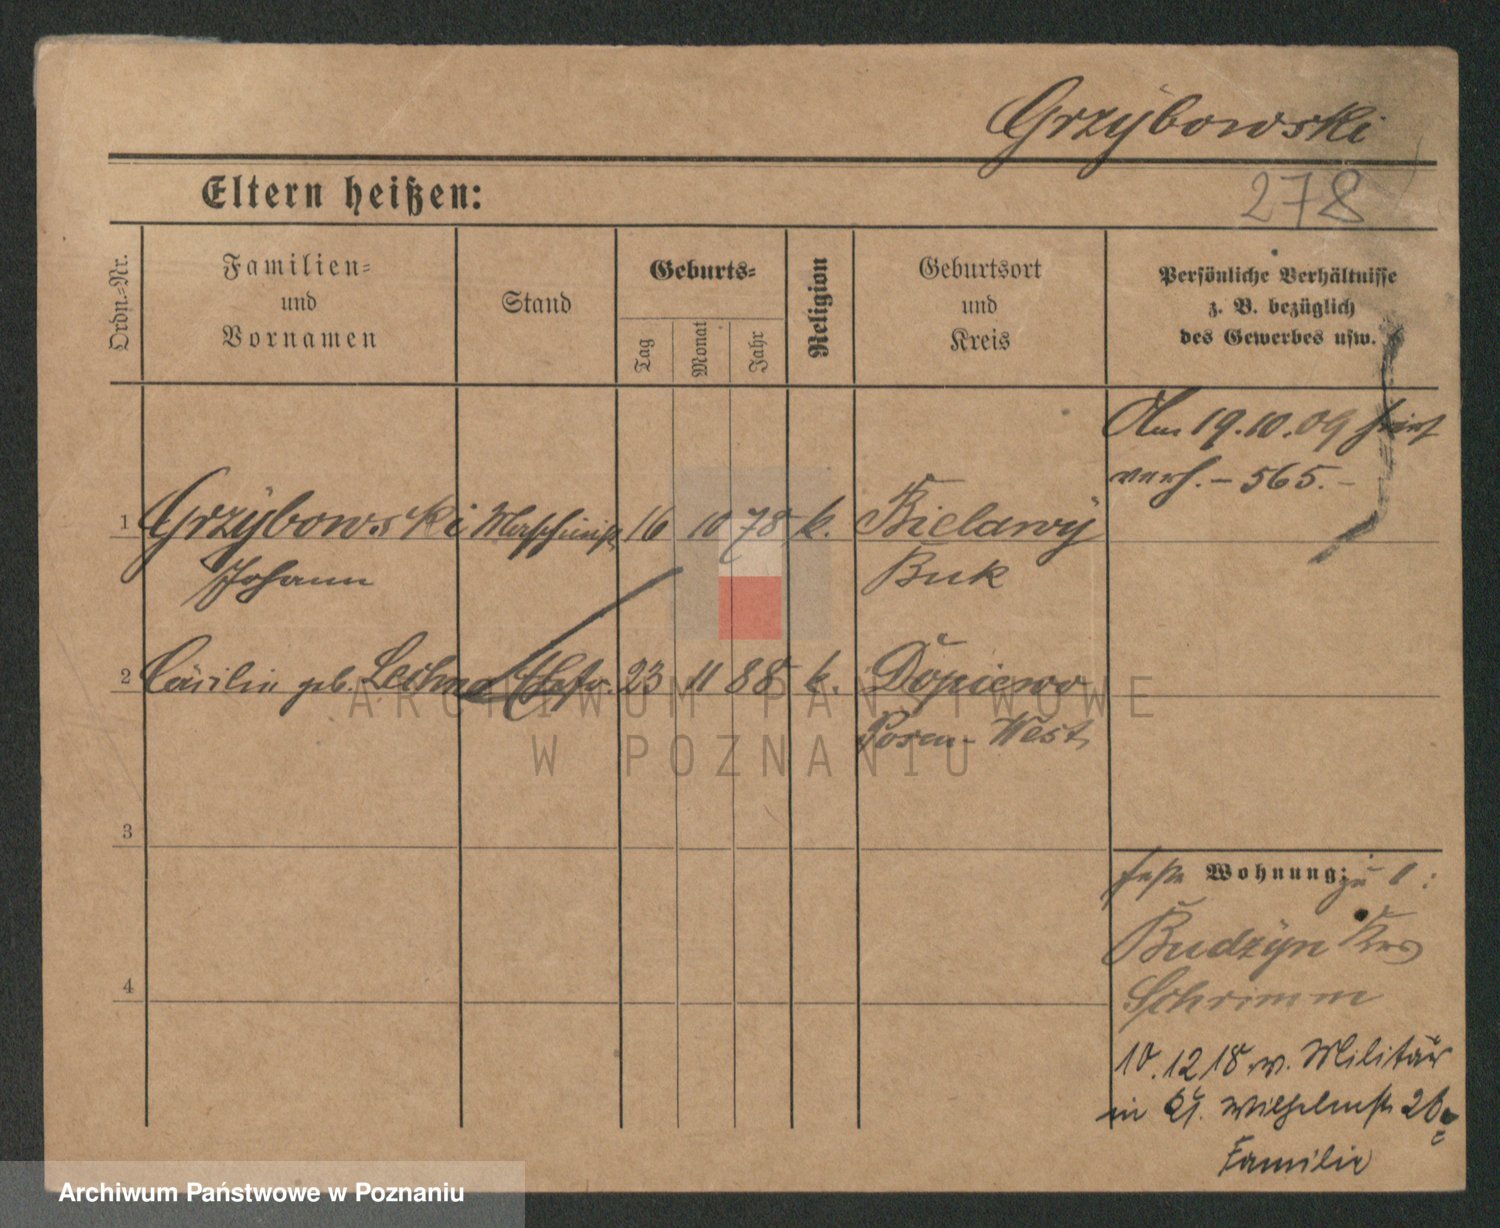 Grzybowski
278
Eltern heißen:
Ordn.-Nr.
Familien-
und
Vornamen
Stand
Geburts-
Tag
Monat
Jahr
Religion
Geburtsort
und
Kreis
Persönliche Verhältnisse
z. B. bezüglich
des Gewerbes usw.
Am 19.10.09 hier
verh. - 565. -
1 Grzybowski Maschinist 16 10 78 k. Bielawy
Johann Buk
2 Cäcilie geb. Lechna Ehefr. 23 11 88 k. Dopiewo
Posen-West
3
feste Wohnung: zu 1:
Budzyn Krs
Schrimm
4
10.12 18 v. Militär
in Wilhelmstr 26
Familie
ARCHIWUM PAŃSTWOWE
W POZNANIU
Archiwum Państwowe w Poznaniu